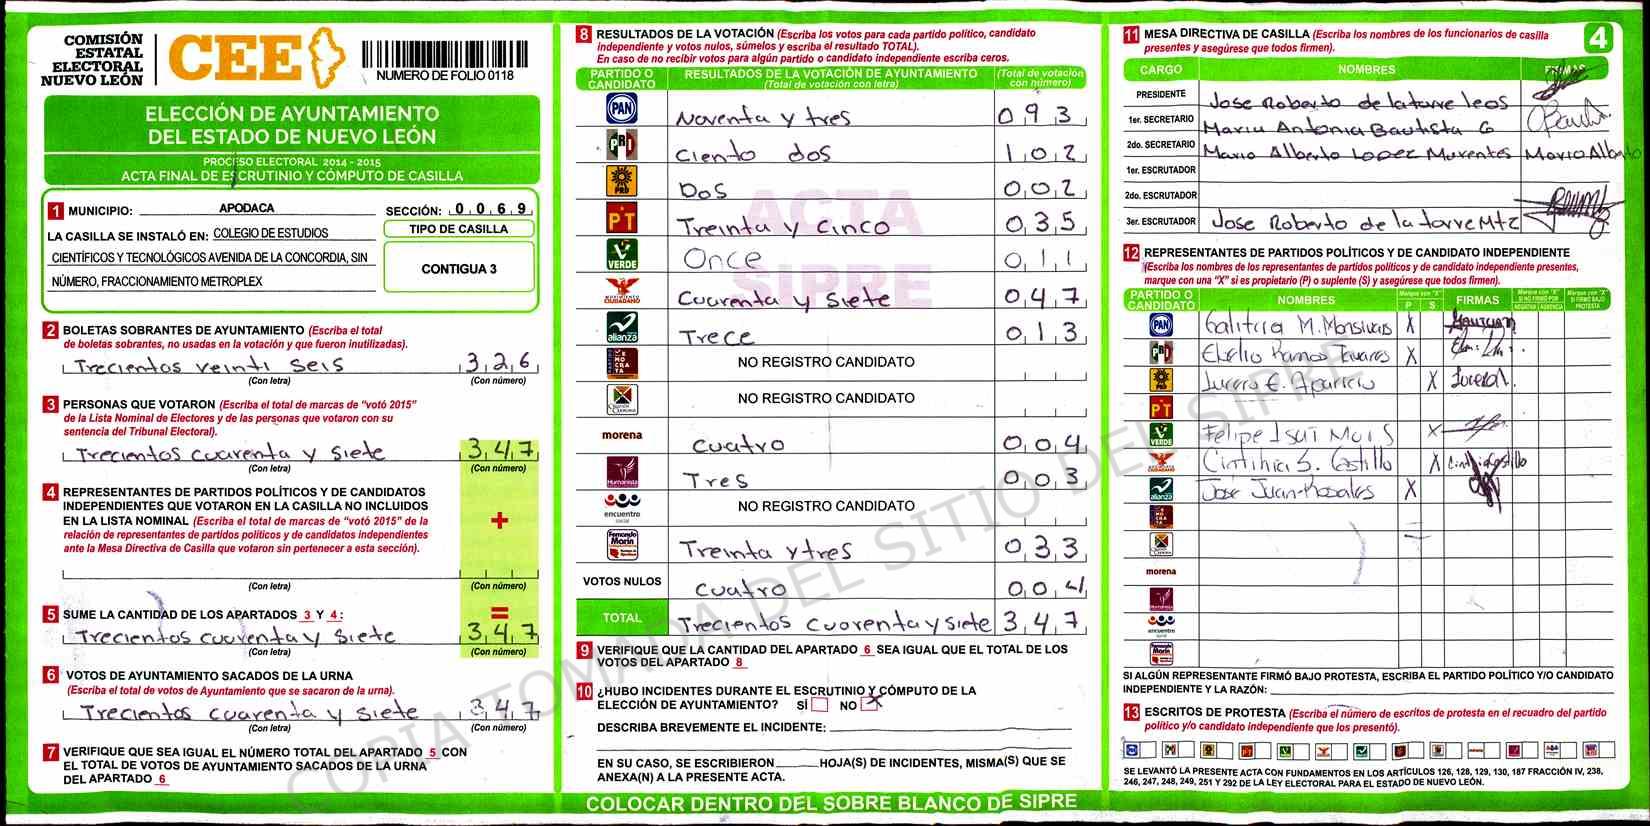 COMISIÓN
ESTATAL
ELECTORAL
NUEVO LEÓN
CEE
NUMERO DE FOLIO 0118
ELECCIÓN DE AYUNTAMIENTO
DEL ESTADO DE NUEVO LEÓN
PROCESO ELECTORAL 2014 - 2015
ACTA FINAL DE ESCRUTINIO Y CÓMPUTO DE CASILLA
1 MUNICIPIO: APODACA SECCIÓN: 0 0 6 9
LA CASILLA SE INSTALÓ EN: COLEGIO DE ESTUDIOS
CIENTÍFICOS Y TECNOLÓGICOS AVENIDA DE LA CONCORDIA, SIN
NÚMERO, FRACCIONAMIENTO METROPLEX
TIPO DE CASILLA
CONTIGUA 3
2 BOLETAS SOBRANTES DE AYUNTAMIENTO (Escriba el total
de boletas sobrantes, no usadas en la votación y que fueron inutilizadas).
Trecientos veinti seis 3 2 6
(Con letra) (Con número)
3 PERSONAS QUE VOTARON (Escriba el total de marcas de “votó 2015”
de la Lista Nominal de Electores y de las personas que votaron con su
sentencia del Tribunal Electoral).
Trecientos cuarenta y siete 3 4 7
(Con letra) (Con número)
4 REPRESENTANTES DE PARTIDOS POLÍTICOS Y DE CANDIDATOS
INDEPENDIENTES QUE VOTARON EN LA CASILLA NO INCLUIDOS
EN LA LISTA NOMINAL (Escriba el total de marcas de “votó 2015” de la
relación de representantes de partidos políticos y de candidatos independientes
ante la Mesa Directiva de Casilla que votaron sin pertenecer a esta sección).
+
(Con letra) (Con número)
=
5 SUME LA CANTIDAD DE LOS APARTADOS 3 Y 4:
Trecientos cuarenta y siete 3 4 7
(Con letra) (Con número)
6 VOTOS DE AYUNTAMIENTO SACADOS DE LA URNA
(Escriba el total de votos de Ayuntamiento que se sacaron de la urna).
Trecientos cuarenta y siete 3 4 7
(Con letra) (Con número)
7 VERIFIQUE QUE SEA IGUAL EL NÚMERO TOTAL DEL APARTADO 5 CON
EL TOTAL DE VOTOS DE AYUNTAMIENTO SACADOS DE LA URNA
DEL APARTADO 6
8 RESULTADOS DE LA VOTACIÓN (Escriba los votos para cada partido político, candidato
independiente y votos nulos, súmelos y escriba el resultado TOTAL).
En caso de no recibir votos para algún partido o candidato independiente escriba ceros.
PARTIDO O CANDIDATO RESULTADOS DE LA VOTACIÓN DE AYUNTAMIENTO (Total de votación con letra) (Total de votación con número)
PAN Noventa y tres 0 9 3
PRI Ciento dos 1 0 2
PRD Dos 0 0 2
PT Treinta y cinco 0 3 5
VERDE Once 0 1 1
MOVIMIENTO CIUDADANO Cuarenta y siete 0 4 7
alianza Trece 0 1 3
DEMOCRATA NO REGISTRO CANDIDATO
NO REGISTRO CANDIDATO
morena cuatro 0 0 4
Humanista Tres 0 0 3
encuentro social NO REGISTRO CANDIDATO
Fernando Marín Treinta y tres 0 3 3
VOTOS NULOS cuatro 0 0 4
TOTAL Trecientos cuarenta y siete 3 4 7
ACTA
SIPRE
9 VERIFIQUE QUE LA CANTIDAD DEL APARTADO 6 SEA IGUAL QUE EL TOTAL DE LOS
VOTOS DEL APARTADO 8
10 ¿HUBO INCIDENTES DURANTE EL ESCRUTINIO Y CÓMPUTO DE LA
ELECCIÓN DE AYUNTAMIENTO? SÍ NO X
DESCRIBA BREVEMENTE EL INCIDENTE:
EN SU CASO, SE ESCRIBIERON HOJA(S) DE INCIDENTES, MISMA(S) QUE SE
ANEXA(N) A LA PRESENTE ACTA.
COLOCAR DENTRO DEL SOBRE BLANCO DE SIPRE
11 MESA DIRECTIVA DE CASILLA (Escriba los nombres de los funcionarios de casilla
presentes y asegúrese que todos firmen).
4
CARGO NOMBRES FIRMAS
PRESIDENTE Jose Roberto de la torre leos
1er. SECRETARIO Maria Antonia Bautista G
2do. SECRETARIO Mario Alberto Lopez Murentes Mario Alberto
1er. ESCRUTADOR
2do. ESCRUTADOR
3er. ESCRUTADOR Jose Roberto de la torre Mtz
12 REPRESENTANTES DE PARTIDOS POLÍTICOS Y DE CANDIDATO INDEPENDIENTE
(Escriba los nombres de los representantes de partidos políticos y de candidato independiente presentes,
marque con una “X” si es propietario (P) o suplente (S) y asegúrese que todos firmen).
PARTIDO O CANDIDATO NOMBRES Marque con "X" P S FIRMAS Marque con "X" SI NO FIRMÓ POR NEGATIVA AUSENCIA Marque con "X" SI FIRMÓ BAJO PROTESTA
PAN M. Monsivais X
PRI Ramos Tavares X
PRD Lucero E. Aparicio X
PT
VERDE Felipe Isai X
Cinthia S. Castillo X
alianza Jose Juan Rosales X
morena
Humanista
encuentro social
SI ALGÚN REPRESENTANTE FIRMÓ BAJO PROTESTA, ESCRIBA EL PARTIDO POLÍTICO Y/O CANDIDATO
INDEPENDIENTE Y LA RAZÓN:
13 ESCRITOS DE PROTESTA (Escriba el número de escritos de protesta en el recuadro del partido
político y/o candidato independiente que los presentó).
SE LEVANTÓ LA PRESENTE ACTA CON FUNDAMENTOS EN LOS ARTÍCULOS 126, 128, 129, 130, 187 FRACCIÓN IV, 238,
246, 247, 248, 249, 251 Y 292 DE LA LEY ELECTORAL PARA EL ESTADO DE NUEVO LEÓN.
COPIA TOMADA DEL SITIO DEL SIPRE